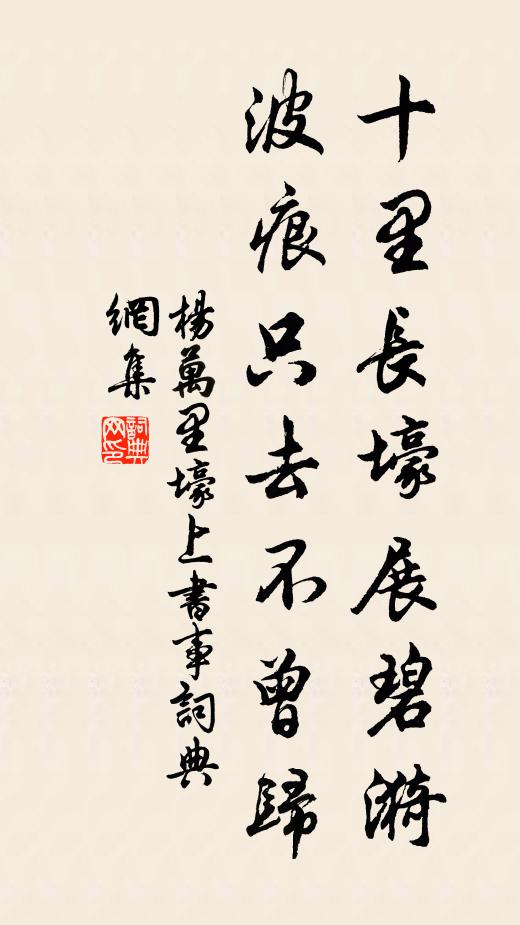 十里長壕展碧漪
波痕只去不曾歸
楊萬里壕上書事詞典
網集
詞典
网印